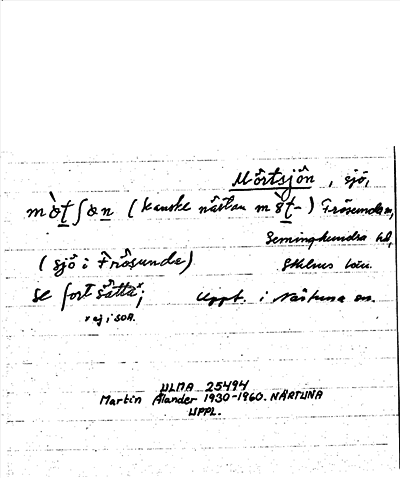 Mörtsjön, sjö,
mö̀tʃön (kanske nästan mö̀t-) Frösunda sn,
Seminghundra hd,
(sjö i Frösunde) Sthlms län.
se fort sätta*; Uppt. i Närtuna sn.
* ej i SOA.
ULMA 25494
Martin Ålander 1930-1960. NÄRTUNA
UPPL.